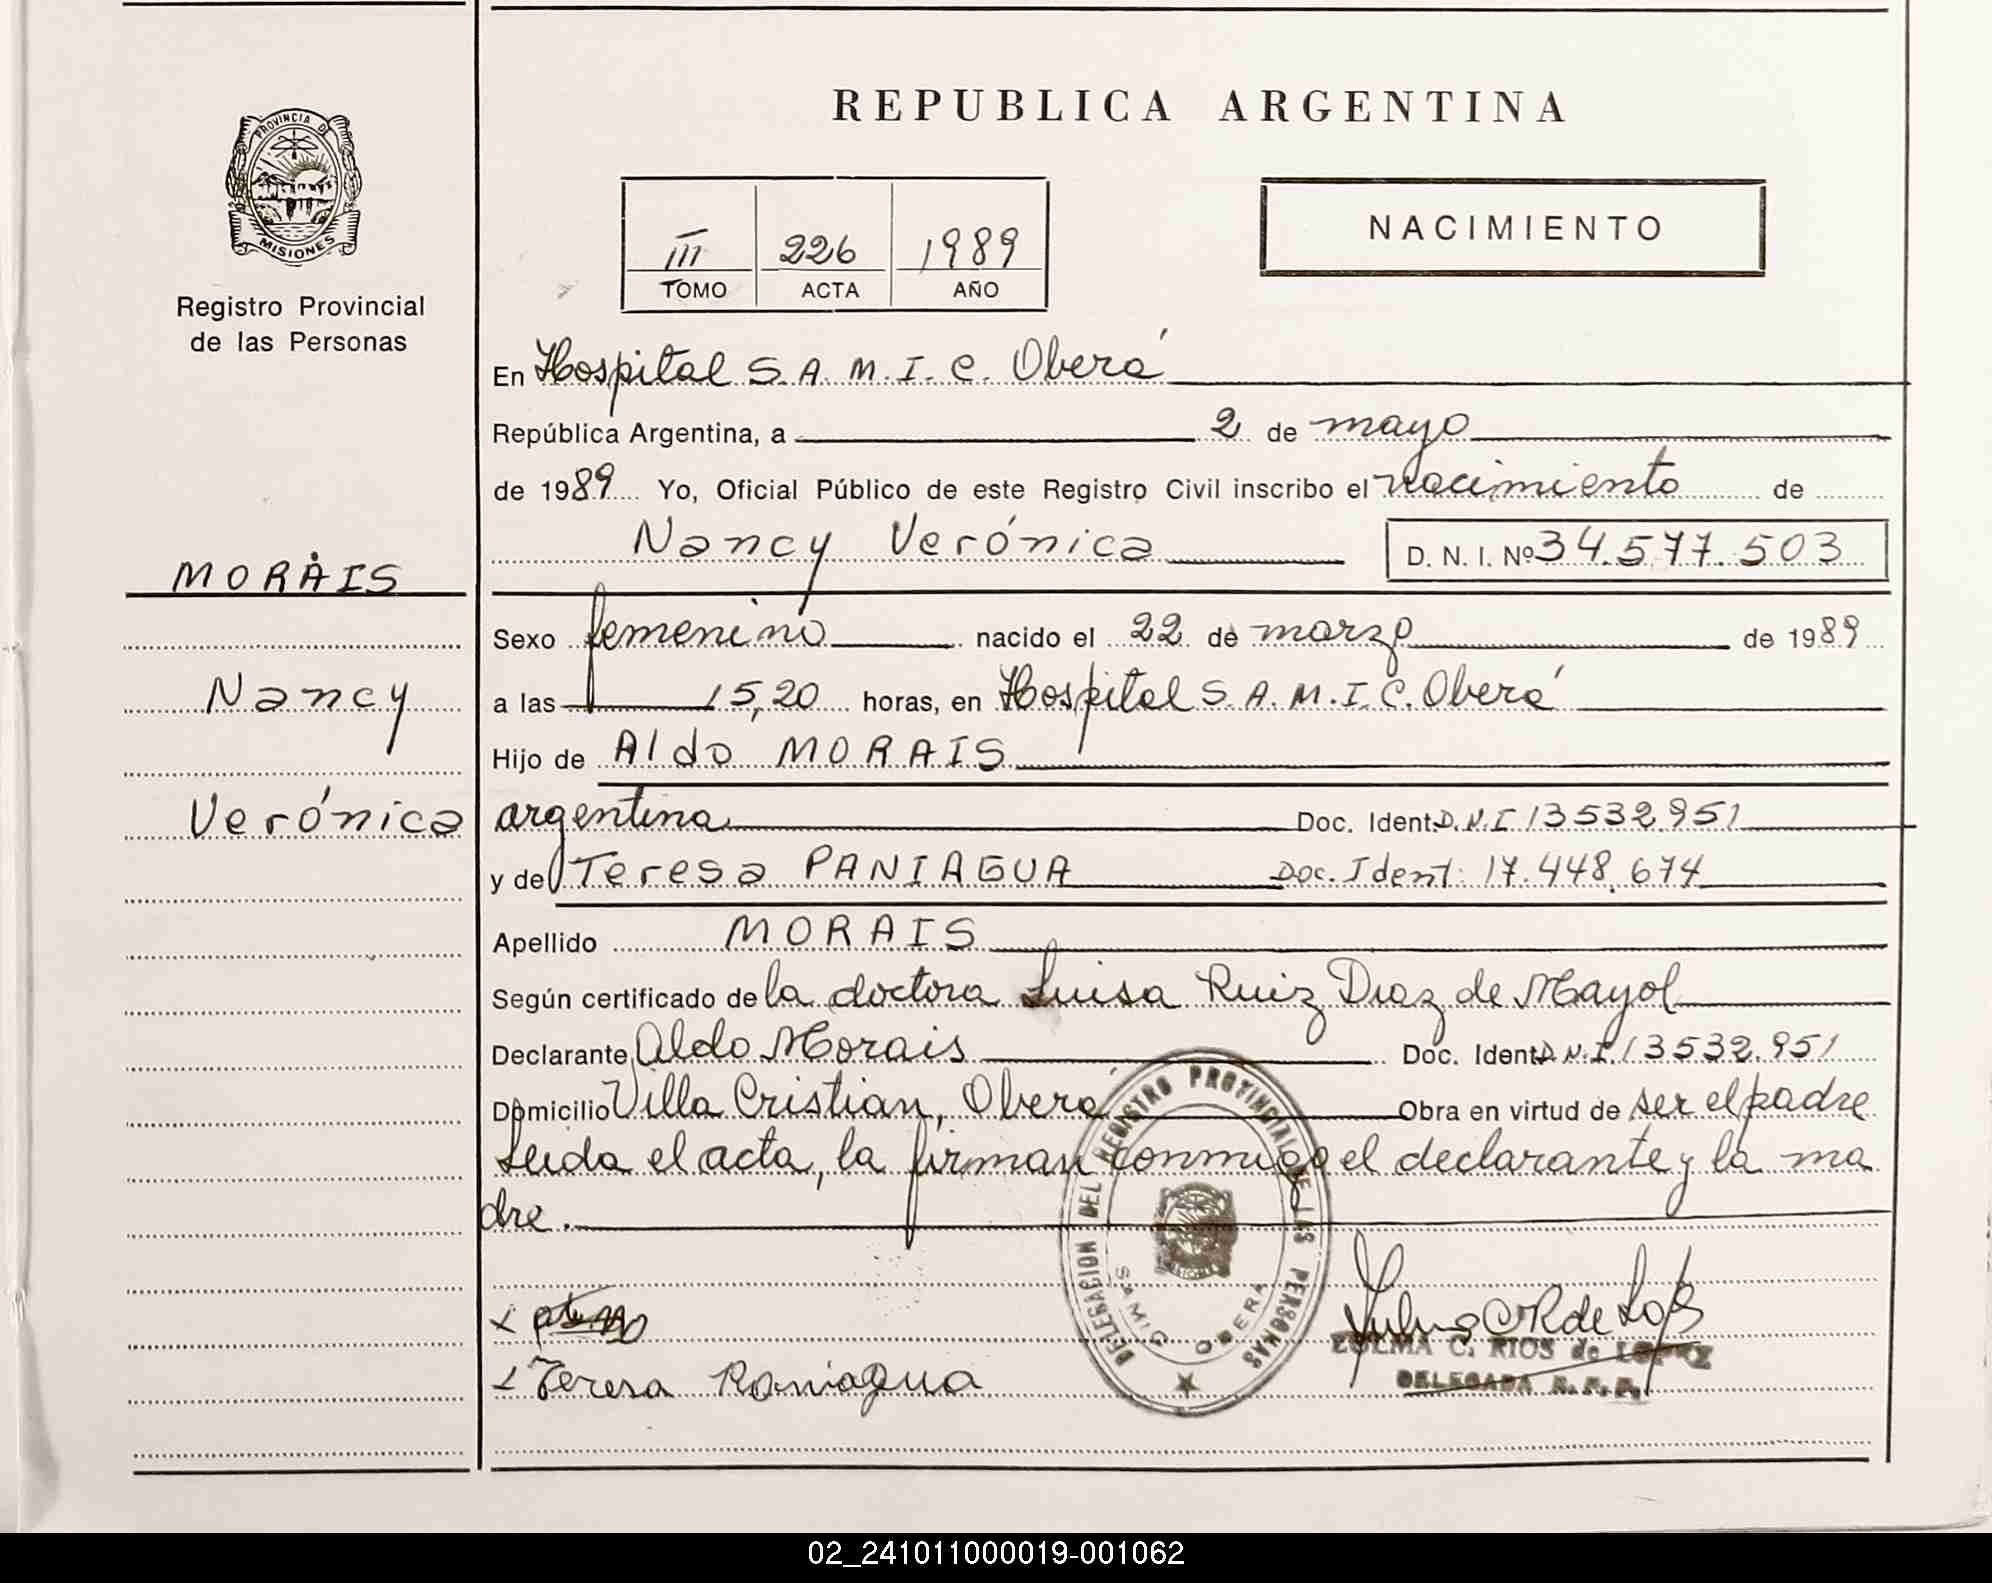 REPUBLICA ARGENTINA
PROVINCIA DE
MISIONES
Registro Provincial
de las Personas
III 226 1989
TOMO ACTA AÑO
NACIMIENTO
En Hospital S.A.M.I.C. Oberá
República Argentina, a 2 de mayo
de 1989 Yo, Oficial Público de este Registro Civil inscribo el nacimiento de
Nancy Verónica D. N. I. Nº 34.577.503
MORAIS
Sexo femenino nacido el 22 de marzo de 1989
Nancy
a las 15,20 horas, en Hospital S.A.M.I.C. Oberá
Hijo de Aldo MORAIS
Verónica
argentina Doc. Ident. D.N.I 13532.951
y de Teresa PANIAGUA Doc. Ident: 17.448.674
Apellido MORAIS
Según certificado de la doctora Luisa Ruiz Diaz de Mayol
Declarante Aldo Morais Doc. Ident. D.N.I. 13532.951
Domicilio Villa Cristian, Oberá Obra en virtud de ser el padre
Leida el acta, la firman conmigo el declarante y la ma
dre.
DELEGACION DEL REGISTRO PROVINCIAL DE LAS PERSONAS
SAMIC OBERA
ZULMA C. RIOS de LOPEZ
DELEGADA R.P.P.
x Teresa Paniagua
02_241011000019-001062